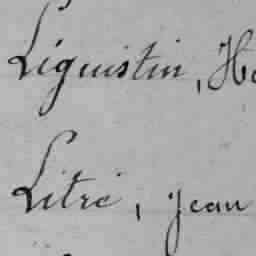 Liguistin, He
Litré, Jean